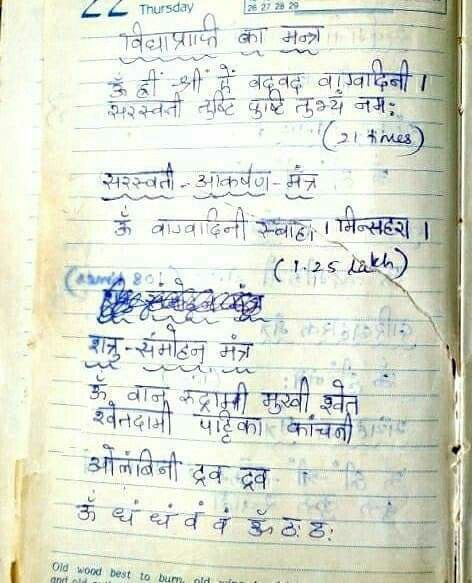 22 Thursday
26 27 28 29
विद्याप्राप्ति का मन्त्र
ॐ ह्रीं श्रीं हें वदवद वाग्वादिनी ।
सरस्वती तुष्टि पुष्टि तुभ्यं नमः
(21 times)
सरस्वती - आकर्षण - मंत्र
ॐ वाग्वादिनी स्वाहा । मिन्सहरा ।
(1.25 lakh)
शत्रु - संमोहन मंत्र
ॐ मुखी श्वेत
श्वेतदामी पाट्टिका कांचनी
ओलंबिनी द्रव द्रव
ॐ धं धं वं वं ॐ ठः ठः
Old wood best to burn, old
and old